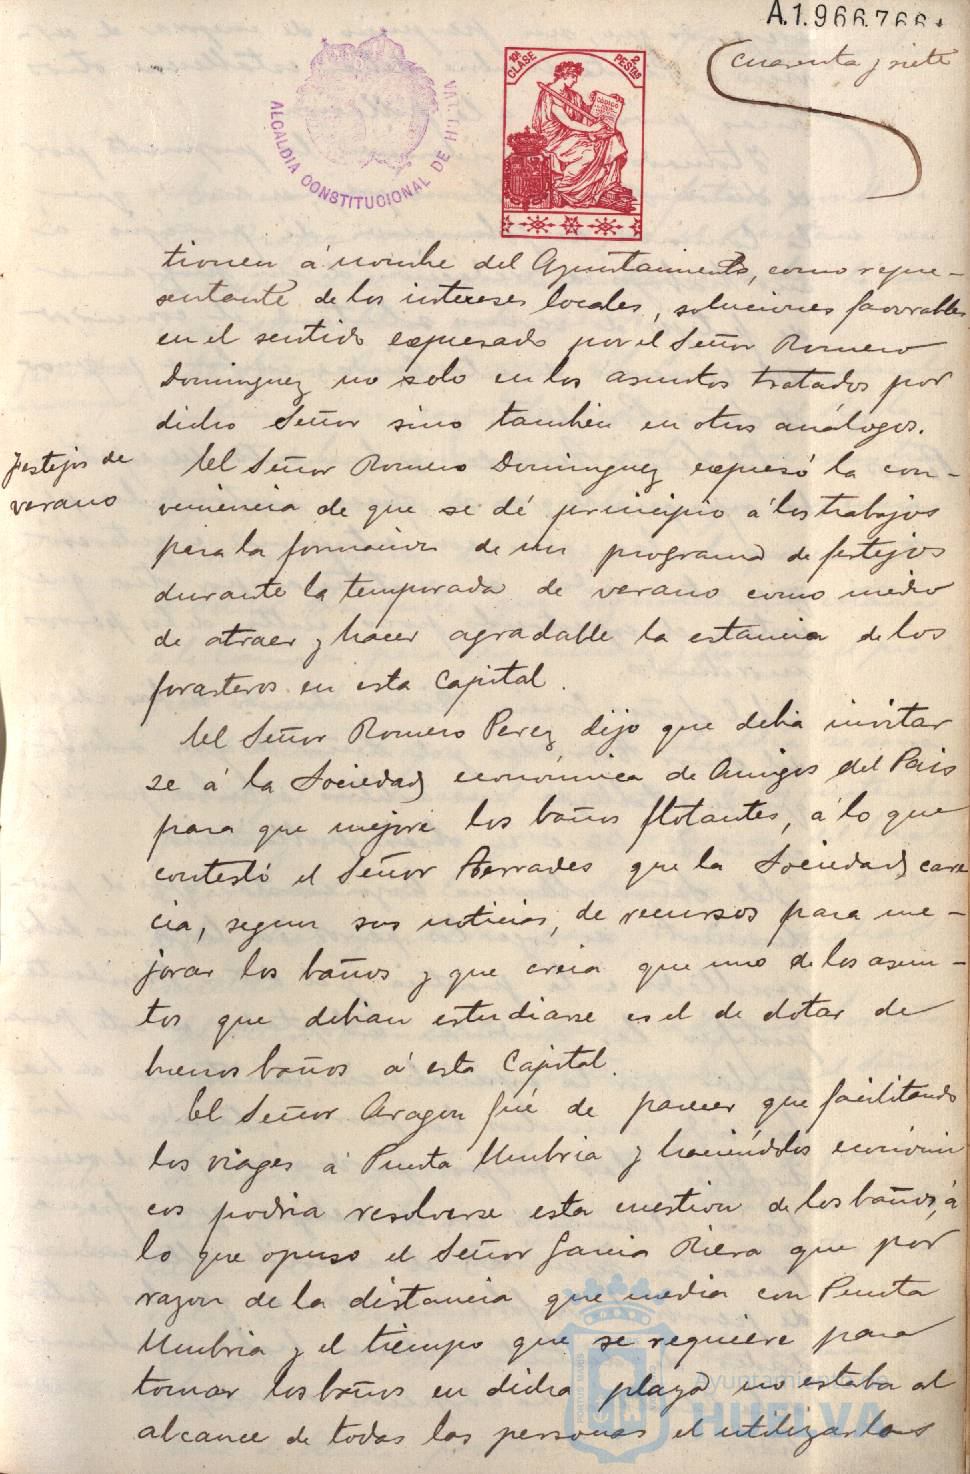 A.1.966.766
cuarenta y siete
10ª CLASE
2 PESETAS
CODIGO
ALCALDIA CONSTITUCIONAL DE HUELVA
tionen á nombre del Ayuntamiento, como repre-
sentante de los intereses locales, soluciones favorables
en el sentido expresado por el Señor Romero
Dominguez no solo en los asuntos tratados por
dicho Señor sino tambien en otros análogos.
Festejos de
verano
El Señor Romero Dominguez expresó la con-
veniencia de que se dé principio á los trabajos
para la formacion de un programa de festejos
durante la temporada de verano como medio
de atraer y hacer agradable la estancia de los
forasteros en esta Capital.
El Señor Romero Perez dijo que debia invitar
se á la Sociedad económica de Amigos del Pais
para que mejore los baños flotantes, á lo que
contestó el Señor Terrades que la Sociedad care
cia, segun sus noticias, de recursos para me-
jorar los baños y que creia que uno de los asun-
tos que debian estudiarse es el de dotar de
buenos baños á esta Capital.
El Señor Aragon fué de parecer que facilitando
los viages á Punta Umbria y haciéndolos económi
cos podria resolverse esta cuestion de los baños, á
lo que opuso el Señor Garcia Riera que por
razon de la distancia que media con Punta
Umbria y el tiempo que se requiere para
tomar los baños en dicha playa no estaba al
alcance de todas las personas el utilizarlos
Ayuntamiento de
HUELVA